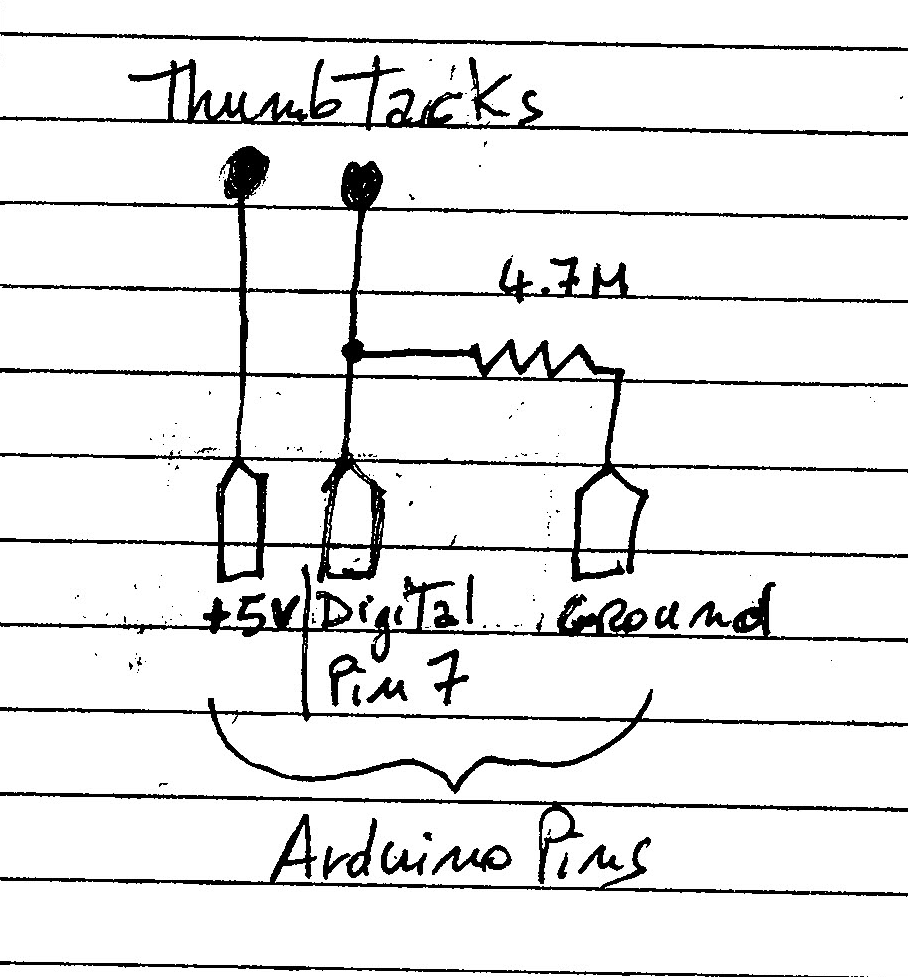 ThumbTacks
4.7M
+5V Digital Ground
Pin 7
Arduino Pins